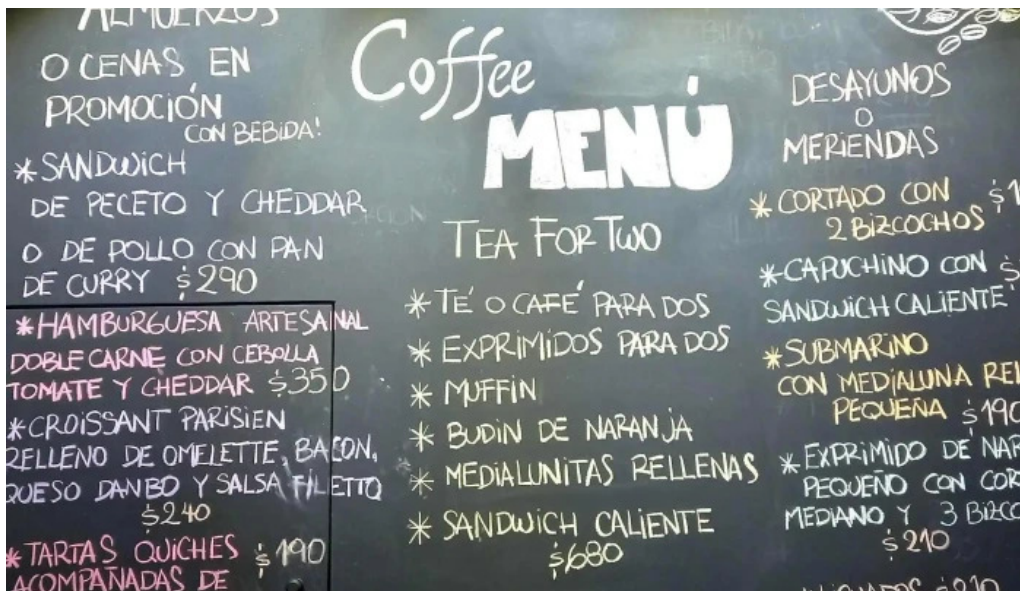 ALMUERZOS
O CENAS EN
PROMOCIÓN
CON BEBIDA!
* SANDWICH
DE PECETO Y CHEDDAR
O DE POLLO CON PAN
DE CURRY $290
* HAMBURGUESA ARTESANAL
DOBLE CARNE CON CEBOLLA
TOMATE Y CHEDDAR $350
* CROISSANT PARISIEN
RELLENO DE OMELETTE, BACON,
QUESO DANBO Y SALSA FILETTO
$240
* TARTAS QUICHES $190
ACOMPAÑADAS DE
Coffee
MENÚ
TEA FOR TWO
* TÉ O CAFÉ PARA DOS
* EXPRIMIDOS PARA DOS
* MUFFIN
* BUDIN DE NARANJA
* MEDIALUNITAS RELLENAS
* SANDWICH CALIENTE
$680
DESAYUNOS
O
MERIENDAS
* CORTADO CON $1
2 BIZCOCHOS
* CAPUCHINO CON $
SANDWICH CALIENTE
* SUBMARINO
CON MEDIALUNA REL
PEQUEÑA $190
* EXPRIMIDO DE NAR
PEQUEÑO CON COR
MEDIANO Y 3 BIZCO
$210
$210